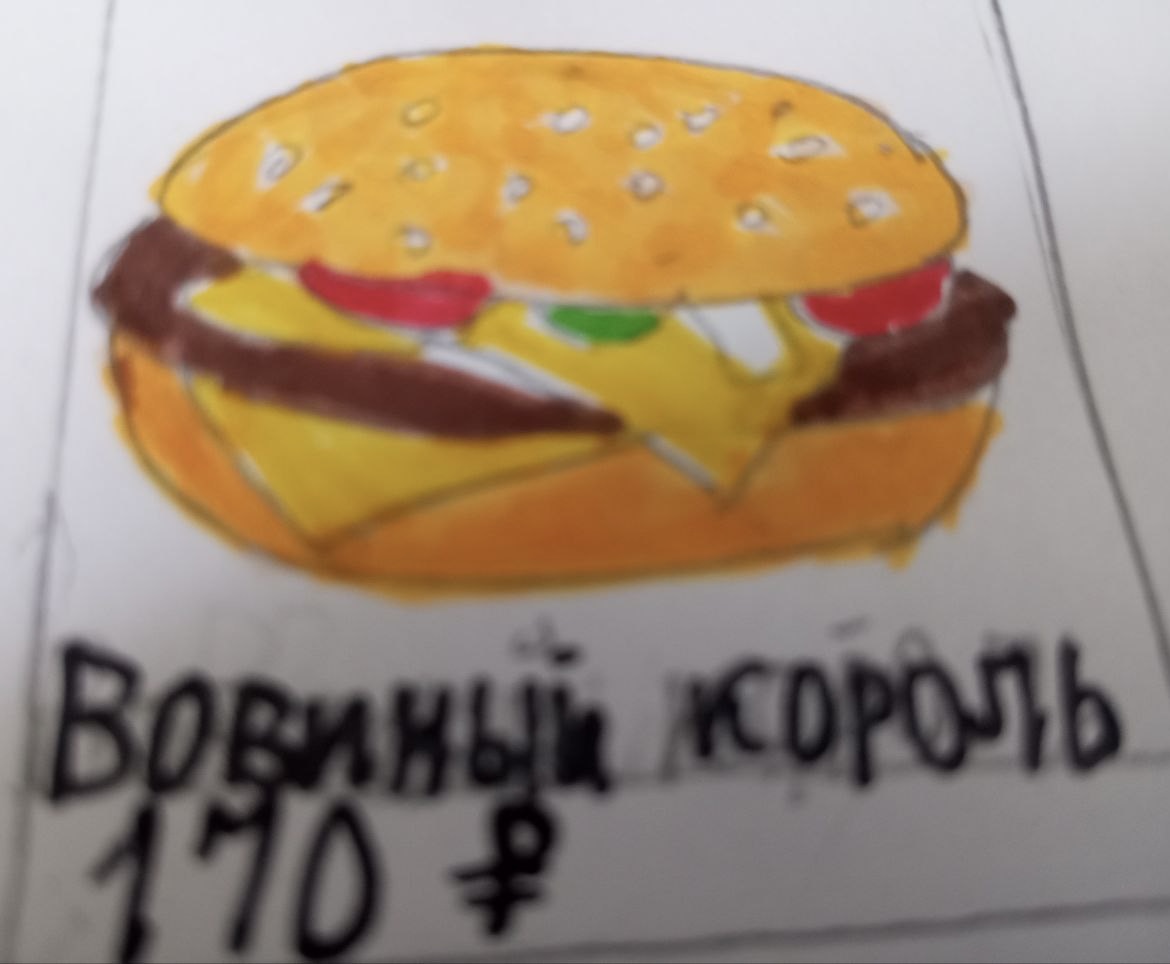 Вовиный король
170 ₽